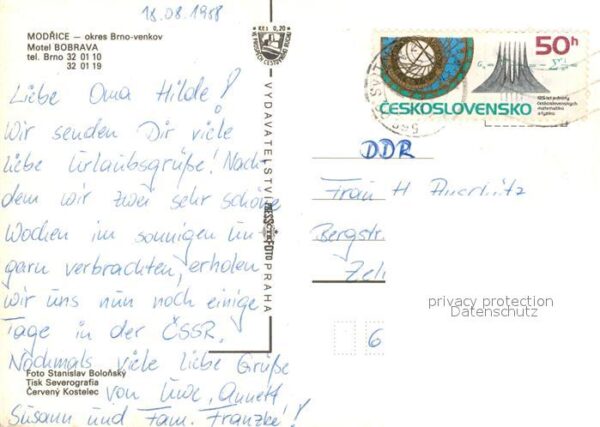 18.08.1988
MODŘICE – okres Brno-venkov
Motel BOBRAVA
tel. Brno 32 01 10
32 01 19
Liebe Oma Hilde!
Wir senden Dir viele
liebe Urlaubsgrüße! Nach
dem wir zwei sehr schöne
Wochen im sonnigen Un
garn verbrachten, erholen
wir uns nun noch einige
Tage in der ČSSR.
Nochmals viele liebe Grüße
von Uwe, Annett
Susann und Fam. Franzke!
Foto Stanislav Boloňský
Tisk Severografia
Červený Kostelec
Kčs 0,20
VYDAVATELSTVÍ
PRESSFOTO
PRAHA
50h
ČESKOSLOVENSKO
125 let jednoty
československých
matematiků
a fyziků
DDR
Frau H
Bergstr.
6
privacy protection
Datenschutz